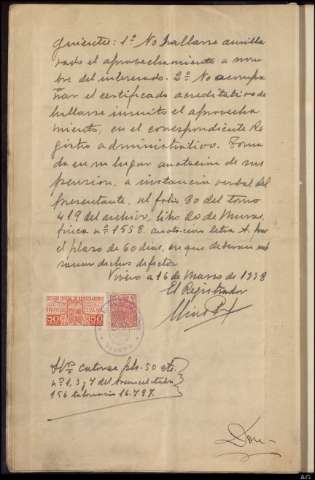 guientes: 1º No hallarse amilla
rado el aprovechamiento a nom
bre del interesado. 2º No acompa
ñar el certificado acreditativo de
hallarse inscrito el aprovecha
miento, en el correspondiente Re
gistro administrativo. Toma
da en su lugar anotacion de sus
pension, a instancia verbal del
presentante, al folio 30 del tomo
419 del archivo, libro 20 de Muras,
finca nº 1558, anotacion letra A, por
el plazo de 60 dias, en que deberan sub
sanar dichos defectos.
Vivero a 16 de Marzo de 1938
El Registrador
50 50
Hºs catorce pts. 50 cts.
nº 1, 3 y 7 del Arancel
156
Don